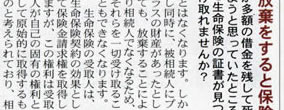 放棄をすると保険
多額の借金を残して死
ようと思っていたところ
生命保険の証書が見つ
取れませんか？
はなくなります。
し同時に、被相続人にプ
ラスの財産があった
も、放棄することによ
り相続人でなくなるため、
それらを一切受けること
生命保険の受取人は、
生命保険契約の効果とし
て保険金請求権を取得し
ますが、この権利は受取
人が自己の固有の権利と
して原始的に取得するも
のと考えられており、相